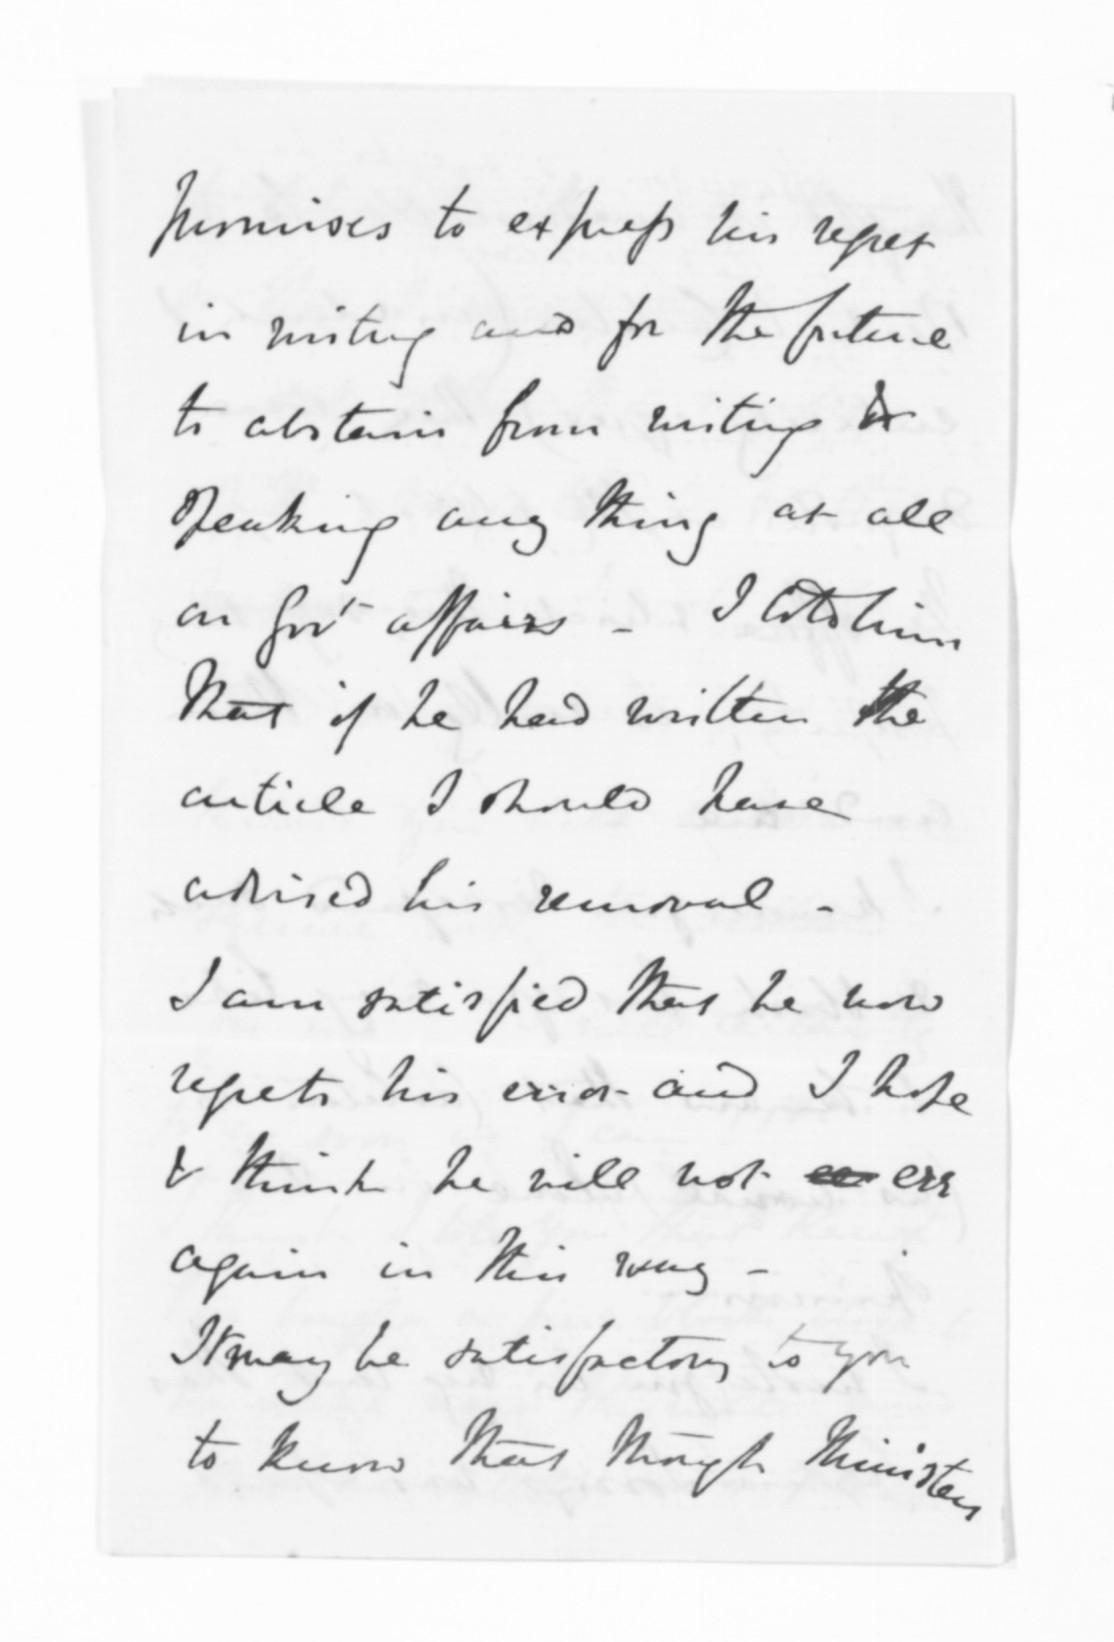 promises to express his regret
in writing and for the future
to abstain from writing or
speaking any thing at all
on Govt affairs - I told him
that if he had written the
article I should have
advised his removal -
I am satisfied that he now
regrets his error and I hope
& think he will not err
again in this way -
It may be satisfactory to you
to know that though Ministers